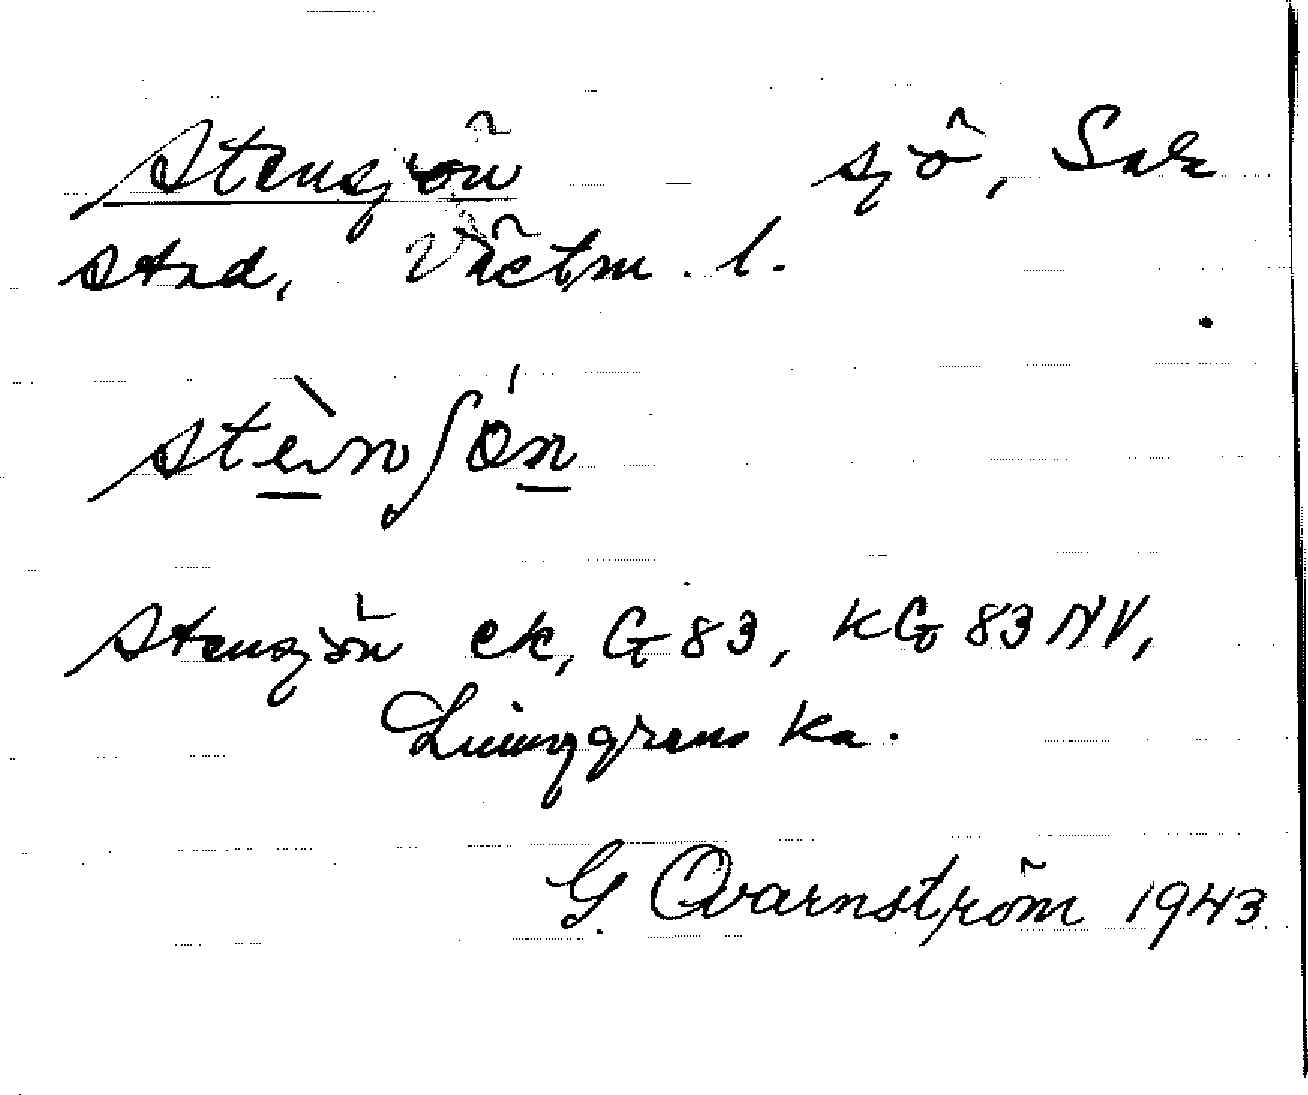 Stensjön sjö, Sala
stad, Västm. l.
stèͅnʃǿn
Stensjön ek, G 83, KG 83 NV,
Ljunggrens ka.
G. Qvarnström 1943